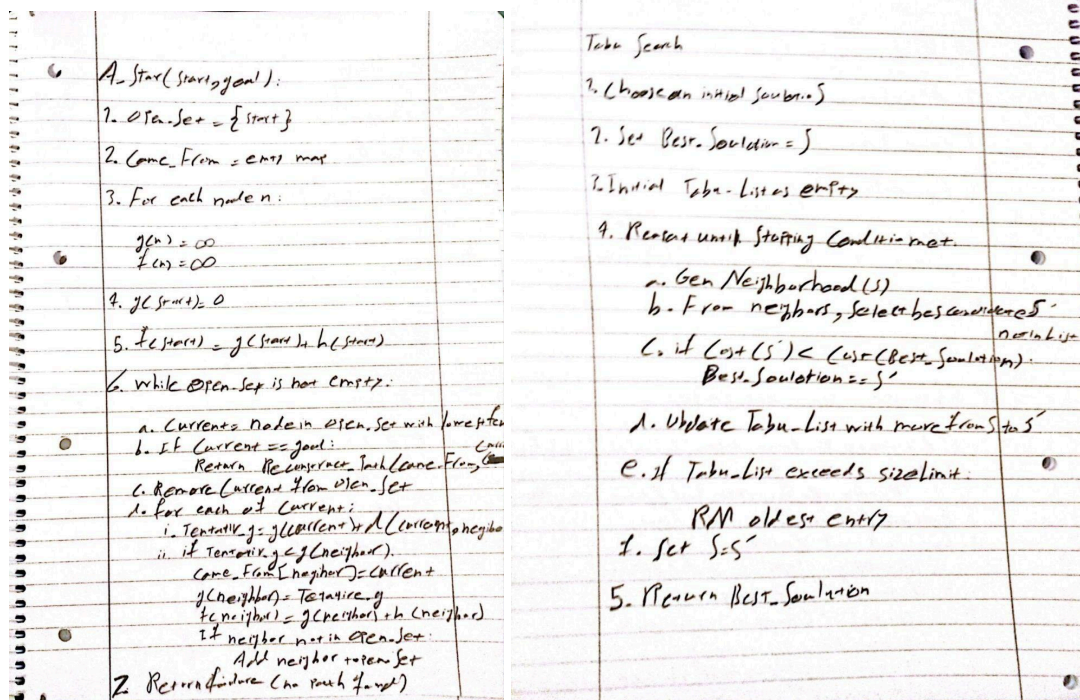 A_Star(start, goal):
1. Open_Set = {start}
2. Came_From = empty map
3. For each node n:
g(n) = ∞
f(n) = ∞
4. g(start) = 0
5. f(start) = g(start) + h(start)
6. While Open_Set is not empty:
a. Current = node in Open_Set with lowest f(n
b. If Current == goal:
Return Reconstruct_Path(Came_From,
C. Remove Current from Open_Set
d. for each of Current:
i. Tentativ_g = g(current) + d(current, neigbo
ii. if Tentativ_g < g(neighbor).
Came_From[neghbor] = current
g(neighbor) = Tetative_g
f(neighbor) = g(neighbor) + h(neighbor)
If neighbor not in Open_Set:
Add neighbor to open Set
7 Return failure (no path found)
Tabu Search
1. Choose an initial Soulution S
2. Set Best_Soulution = S
3. Initial Tabu-List as empty
4. Repeat until Stopping Condition met.
a. Gen Neighborhood(S)
b. From neghbors, Select bes candidate S'
not in List
C. if Cost(S') < Cost(Best_Soulution).
Best_Soulotion == S'
d. Update Tabu_List with move from S to S'
e. if Tabu_List exceeds size limit:
RM oldest entry
f. Set S=S'
5. Return Best_Soulution